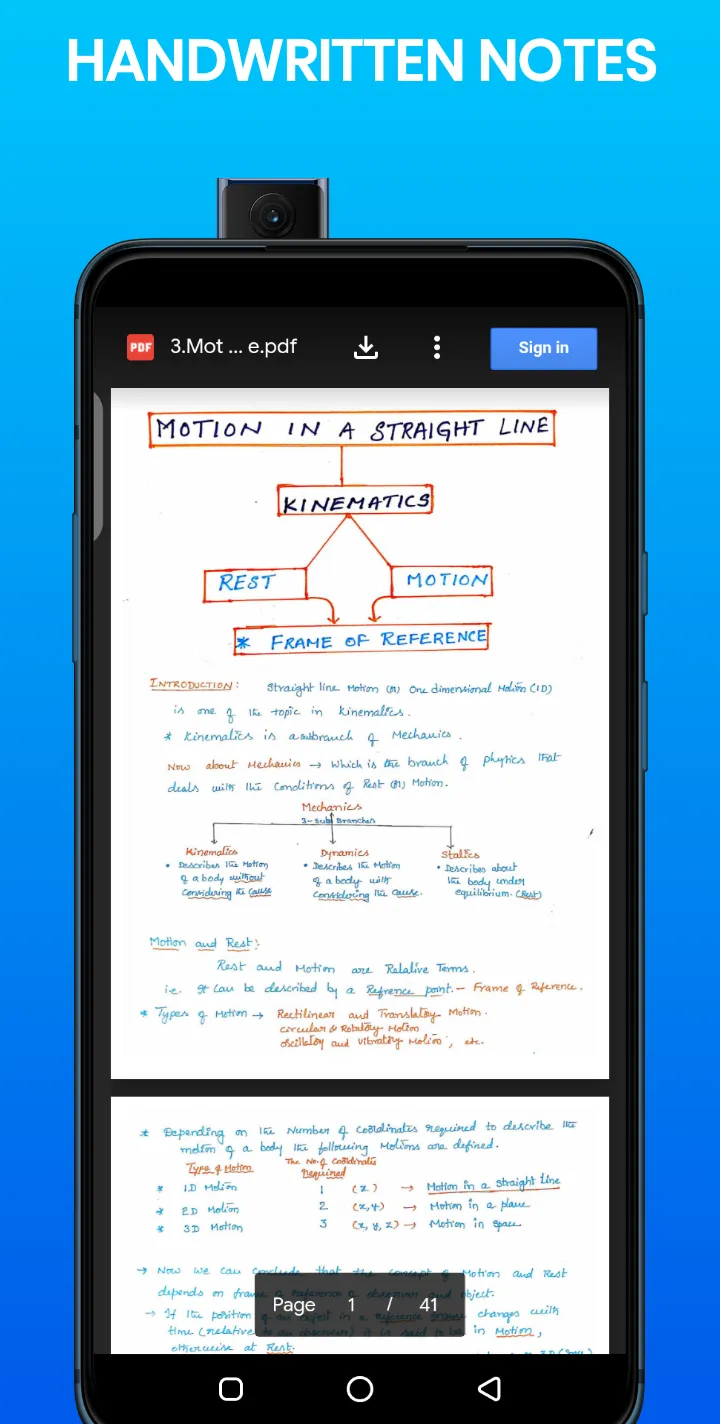 HANDWRITTEN NOTES
PDF 3.Mot ... e.pdf Sign in
MOTION IN A STRAIGHT LINE
KINEMATICS
REST MOTION
* FRAME OF REFERENCE
INTRODUCTION: Straight line Motion (or) One dimensional Motion (1D)
is one of the topic in kinematics.
* Kinematics is a subbranch of Mechanics.
Now about Mechanics → Which is the branch of physics that
deals with the Conditions of Rest (or) Motion.
Mechanics
3-Sub Branches
Kinematics Dynamics Statics
• Describes the Motion • Describes the Motion • Describes about
of a body without of a body with the body under
Considering the Cause Considering the Cause. equilibrium. (Rest)
Motion and Rest:
Rest and Motion are Relative Terms.
i.e. It can be described by a Refrence point. - Frame of Reference.
* Types of Motion → Rectilinear and Translatory Motion.
circular & Rotatory Motion
oscillatory and vibratory Motion, etc.
* Depending on the Number of Coordinates required to describe the
motion of a body the following Motions are defined.
Type of Motion The No. of Coordinates
Required
* 1D Motion 1 (x) → Motion in a straight line
* 2D Motion 2 (x,y) → Motion in a plane
* 3D Motion 3 (x, y, z) → Motion in space
→ Now we can conclude that the concept of Motion and Rest
depends on frame of reference & observer and object.
→ If the position of an object in a reference changes with
time (relative to an observer) it is said to be in Motion,
otherwise at Rest.
Page 1 / 41